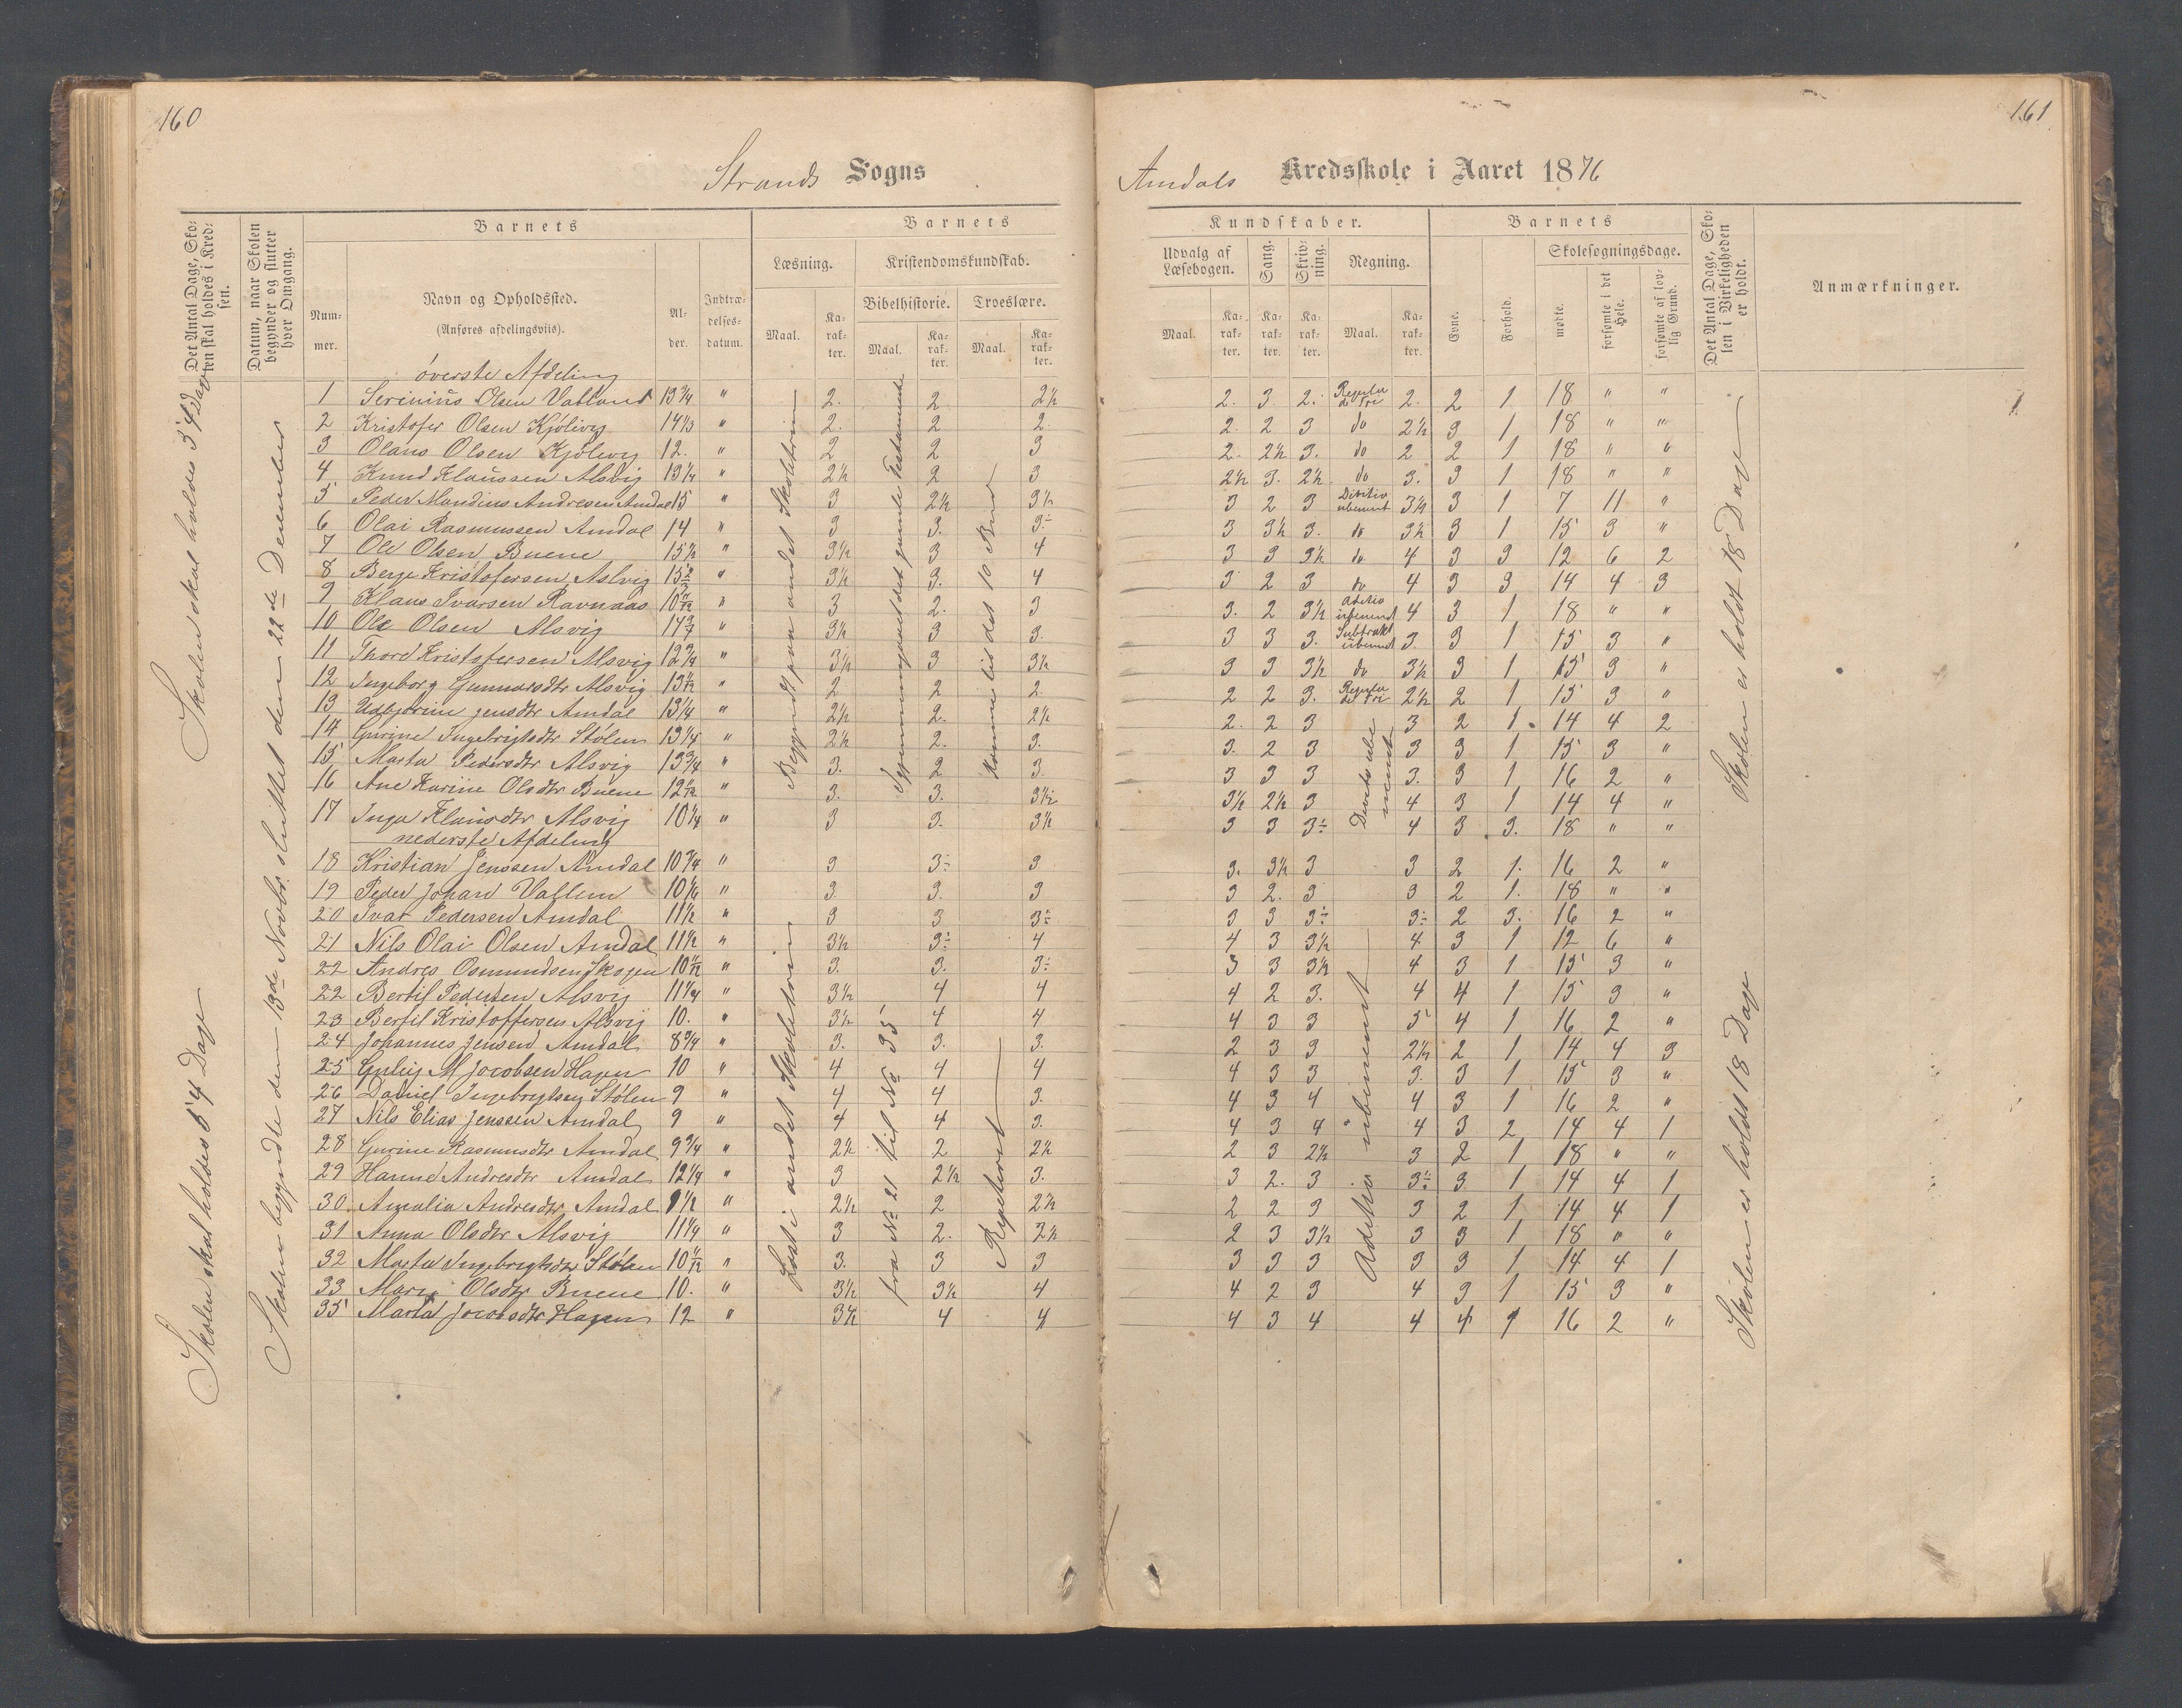 160
161
Strands Sogns
Amdals Kredsskole i Aaret 1876
Det Antal Dage, Skolen skal holdes i Kredsen.
Datum, naar Skolen begynder og slutter hver Omgang.
Barnets
Nummer.
Navn og Opholdssted.
(Anføres afdelingsviis).
Alder.
Indtrædelsesdatum.
Barnets
Læsning.
Kristendomskundskab.
Bibelhistorie. Troeslære.
Maal. Karakter. Maal. Karakter. Maal. Karakter.
Kundskaber.
Udvalg af Læsebogen.
Sang.
Skrivning.
Regning.
Maal. Karakter. Karakter. Karakter. Maal. Karakter.
Barnets
Evne.
Forhold.
Skolesøgningsdage.
mødte.
forsømte i det Hele.
forsømte af lovlig Grund.
Det Antal Dage, Skolen i Virkeligheden er holdt.
Anmærkninger.
Skolen skal holdes 54 Dage
Skolen skal holdes 54 Dage
Skolen begyndte den 13de Novbr. sluttet den 22de December
Begyndt paa andet Skoletrin
Læst i andet Skoletrin
fra No 21 til No 35
Repeteret
Skolen er holdt 18 Dage
Skolen er holdt 18 Dage
Aditio ubenævnt
øverste Afdeling
1 Serenius Olsen Vatland 13 3/4 " 2. 2 2½ 2. 3. 2. Regula de Tri 2. 2 1 18 " "
2 Kristofer Olsen Kjølevig 14 1/3 " 2. 2 2. 2. 2 3 do 2½ 3 1 18 " "
3 Olaus Olsen Kjølevig 12. " 2 2 3 2. 2½ 3. do 2 2 1 18 " "
4 Knud Klaussen Alsvig 13 1/4 " 2½ 2 3 2½ 3. 2½ do 3. 3 1 18 " "
5 Peder Mandius Andresen Amdal 15 " 3 2½ 3½ 3 2 3 Divitio ubenævnt 3½ 3 1 7 11 "
6 Olai Rasmussen Amdal 14 " 3 3. 3÷ 3 3½ 3. do 3½ 3 1 15 3 "
7 Ole Olsen Buene 15½ " 3½ 3 4 3 3 3½ do 4 3 3 12 6 2
8 Berge Kristofersen Aslvig 15 " 3½ 3. 4 3 2 3 do 4 3 3 14 4 3
9 Klaus Ivarsen Ravnaas 10 11/12 " 3 2. 3 3. 2 3½ Aditio ubenævnt 4 3 1 18 " "
10 Ole Olsen Alsvig 14 " 3½ 3 3. 3 3 3. Subtrakt ubenævnt 3. 3 1 15 3 "
11 Thore Kristofersen Alsvig 12 3/4 " 3½ 3 3½ 3 3 3½ do 3½ 3 1 15 3 "
12 Ingeborg Gunnarsdtr Alsvig 13 " 2 2 2. 2 2 3. Regula de Tri 2½ 2 1 15 3 "
13 Udbjørine Jensdtr Amdal 13 1/4 " 2½ 2. 2½ 2. 2 3 3 2 1. 14 4 2
14 Gurine Ingebrigtsdtr Stølen 13 1/4 " 2½ 2. 3. 3. 2 3 3 3 1 15 3 "
15 Marta Pedersdtr Alsvig 13 3/4 " 3. 2 3. 3 3 3 3. 3 1 16 2 "
16 Ane Karine Olsdtr Buene 12 " 3. 3. 3½ 3½ 2½ 3 4 3 1 14 4 "
17 Inga Klausdtr Alsvig 10 1/4 " 3 3. 3½ 3 3 3÷ 4 3 3. 18 " "
nederste Afdeling
18 Kristian Jenssen Amdal 10 3/4 " 3 3÷ 3 3. 3½ 3 3 2 1. 16 2 "
19 Peder Johan Vatlun 10 1/6 " 3 3. 3 3 2. 3 3 2 1. 18 " "
20 Ivar Pedersen Amdal 11½ " 3 3 3÷ 3 3 3÷ 3÷ 2 3. 16 2 "
21 Nils Olai Olsen Amdal 11½ " 3½ 3÷ 4 4 3 3½ 4 3 1 12 6 "
22 Andres Osmundsen Skogen 10 11/12 " 3. 3. 3÷ 3 3 3½ 4 3 1 15 3 "
22 Bertil Pedersen Alsvig 11 1/4 " 3½ 4 4 4 2 3. 4 4 1 15 3 "
23 Bertil Kristoffersen Alsvig 10. " 3½ 4 4 4 3 3 5 4 1 16 2 "
24 Johannes Jensen Amdal 8 3/4 " 3. 3. 3. 2 3 3 2½ 2 1 14 4 3
25 M Jacobsen Hagen 10 " 4 4 4 4 3 3 3. 3 1 15 3 "
26 Daniel Ingebrigtsen Stølen 9 " 4 4 3. 4 3 4 4 3 1 16 2 "
27 Nils Elias Jenssen Amdal 9 " 4 4 3. 4 3 4 4 3 2 14 4 1
28 Gurine Rasmusdtr Amdal 9 3/4 " 2½ 2 2½ 2 3 2½ 3 2 1 18 " "
29 Hanne Andresdtr Amdal 12 1/4 " 3 2½ 3. 3 2. 3 3÷ 3 1 14 4 1
30 Amalia Andresdtr Amdal 9½ " 2½ 2 2½ 2 2 3 3 2 1 14 4 1
31 Anna Olsdtr Alsvig 11 1/4 " 3 2. 2½ 2 3 3½ 3 3 1 18 " "
32 Marta Ingebrigtsdtr Stølen 10 11/12 " 3. 3 3 3 3 3 3 3 1 14 4 1
33 Mari Olsdtr Buene 10. " 3½ 3½ 4 4 2 3 4 3 1 15 3 "
35 Marta Jacobsdtr Hagen 12 " 3½ 4 4 4 3 4 4 4 1 16 2 "